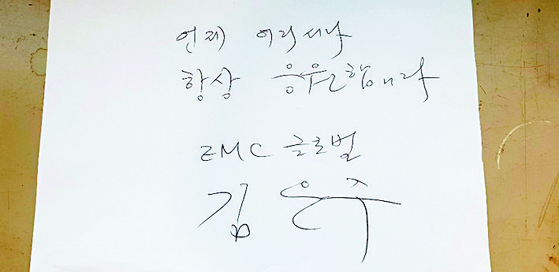 언제 어디서나
항상 응원합니다
EMC 글로벌
김은주